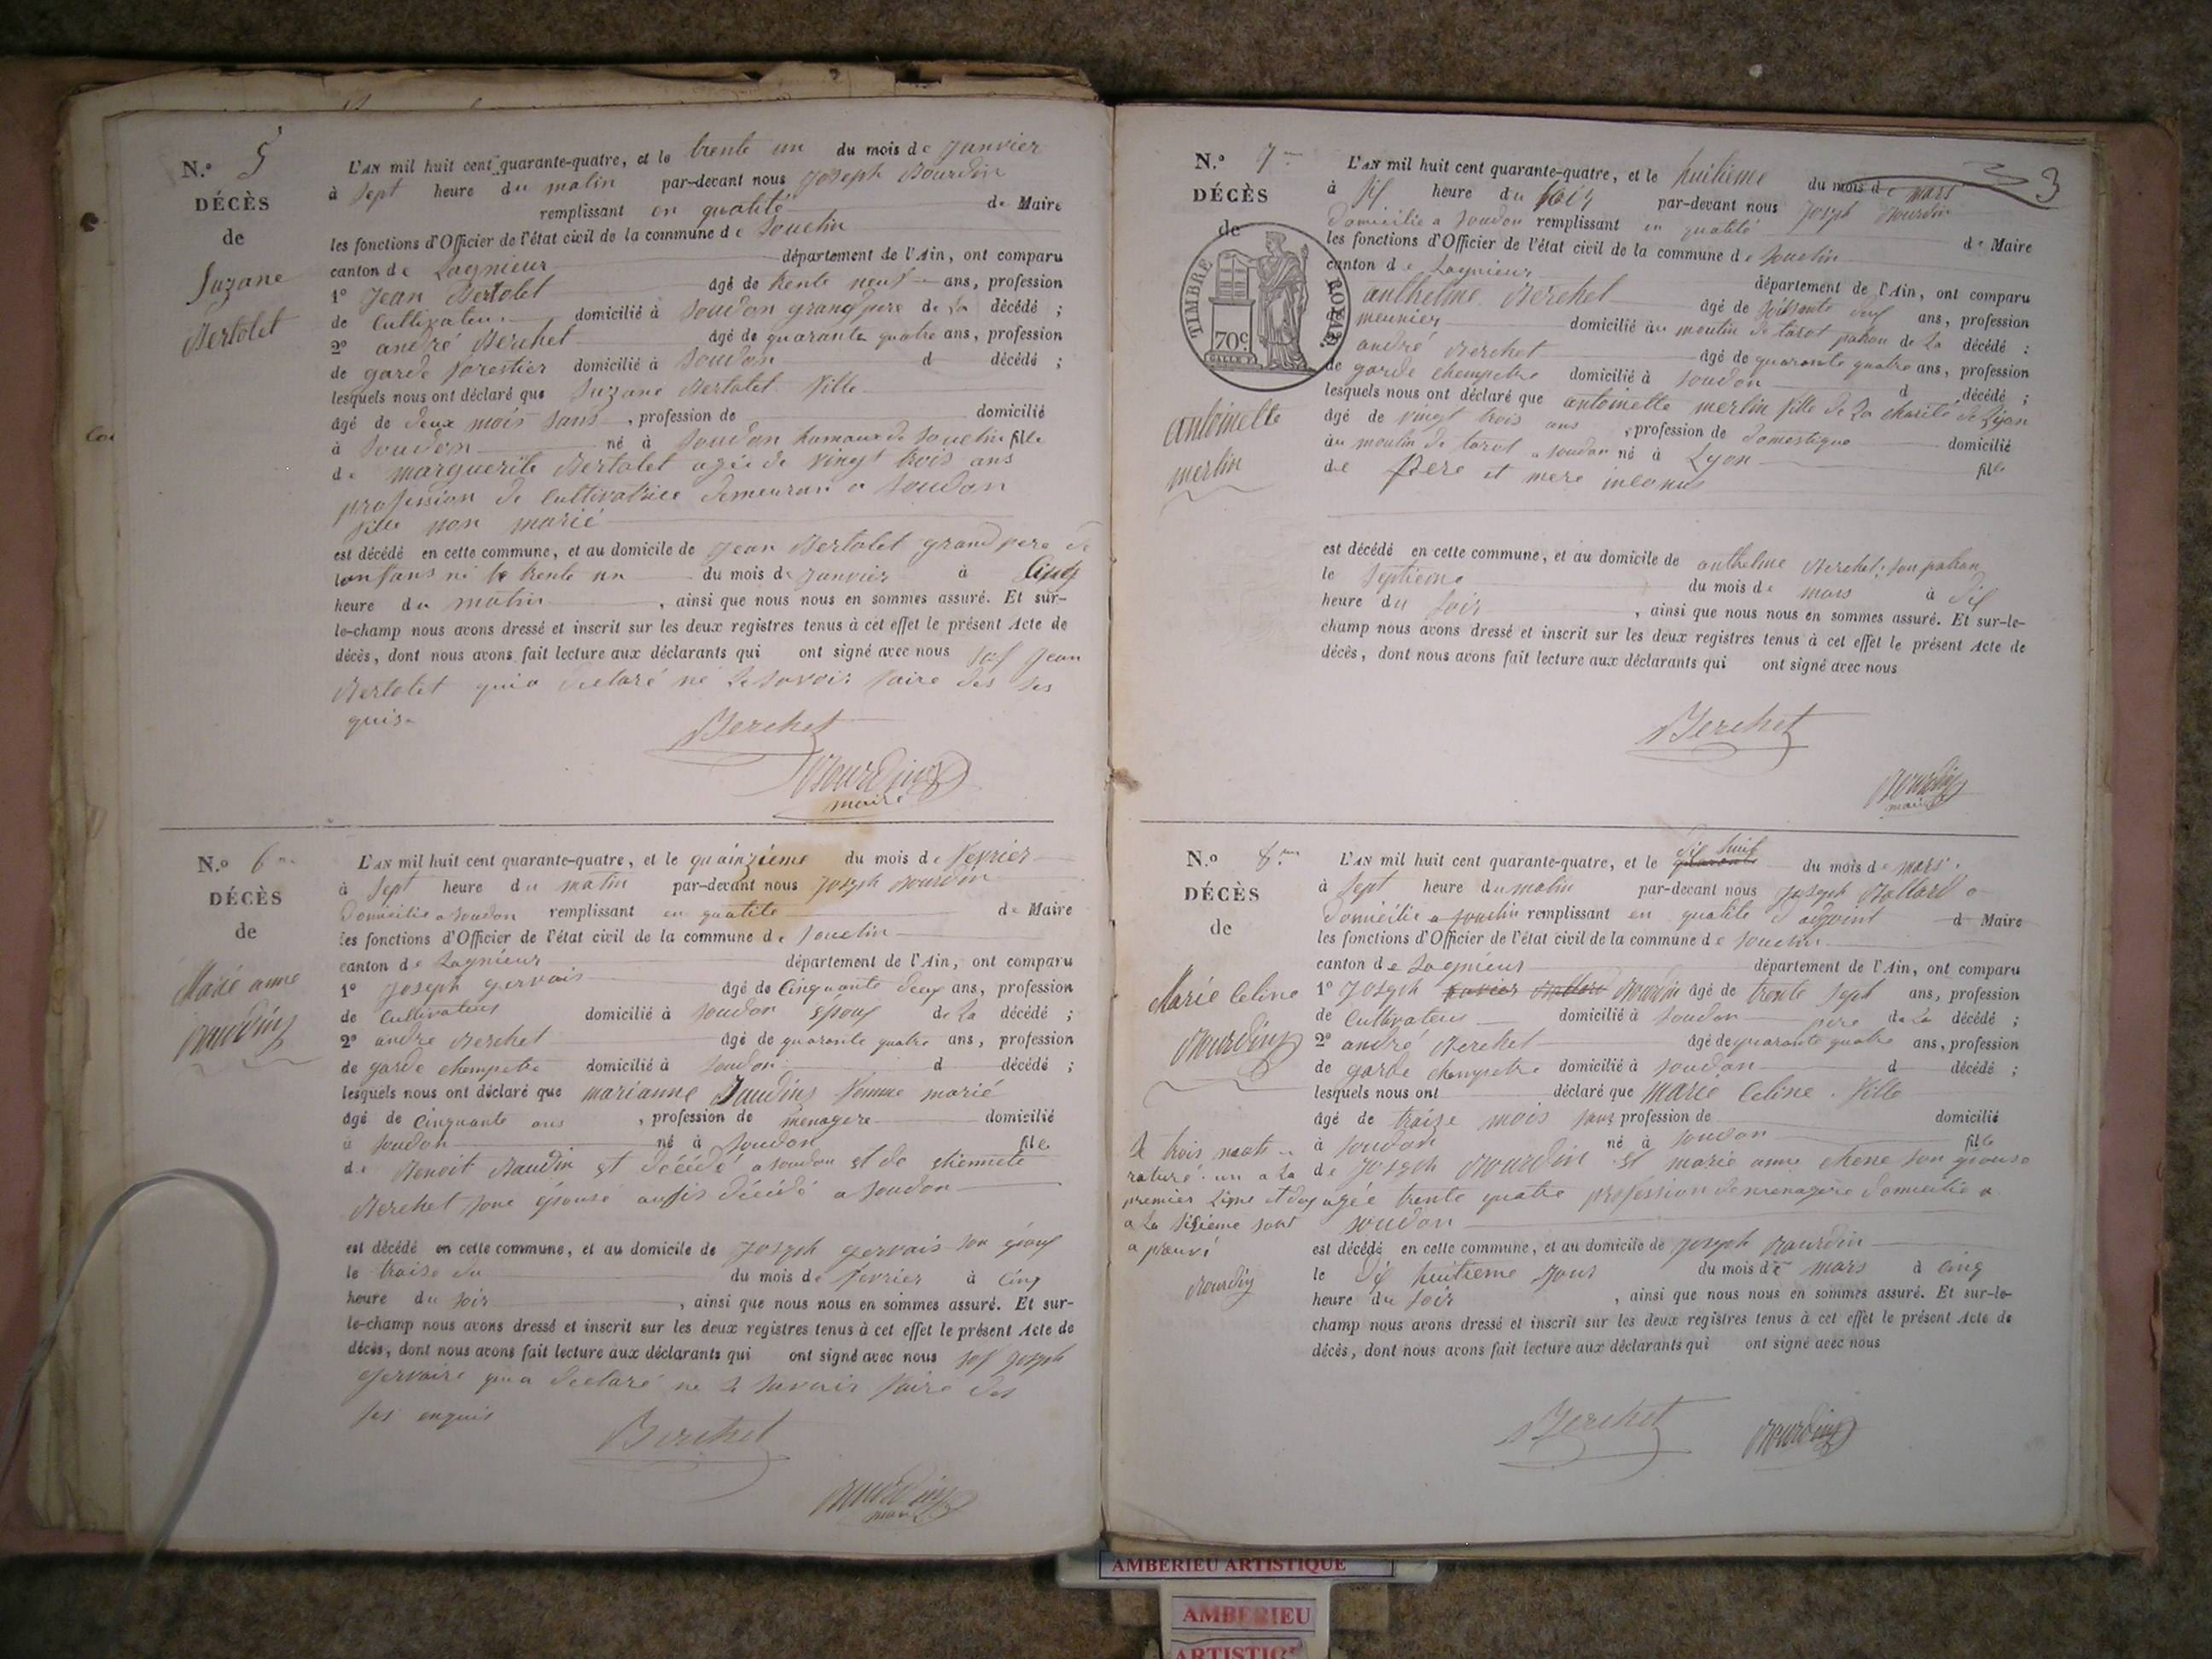 N.º 5
DÉCÈS
de
Suzane
Bertolet
L'AN mil huit cent quarante-quatre, et le trente un du mois de janvier
à sept heure du matin par-devant nous Joseph Bourdin
remplissant en qualité de Maire
les fonctions d'Officier de l'état civil de la commune de Souclin
canton de Lagnieur département de l'Ain, ont comparu
1º Jean Bertolet âgé de trente neuf ans, profession
de Cultivateur domicilié à Soudon grand pere de La décédé ;
2º andré Berchet âgé de quarante quatre ans, profession
de garde forestier domicilié à Soudon d décédé ;
lesquels nous ont déclaré que Suzane Bertolet fille
âgé de deux mois sans , profession de domicilié
à Soudon né à Soudon hamaux de Souclin fille
de marguerite Bertolet agée de vingt trois ans
profession de Cultivatrice demeuran a Soudon
fille non marié
est décédé en cette commune, et au domicile de Jean Bertolet grand pere de
lanfans né le trente un du mois de janvier à Cinq
heure du matin , ainsi que nous nous en sommes assuré. Et sur-
le-champ nous avons dressé et inscrit sur les deux registres tenus à cet effet le présent Acte de
décès, dont nous avons fait lecture aux déclarants qui ont signé avec nous sof Jean
Bertolet qui a declaré ne le savoir faire des
quis
Berchet
Bourdin
maire
N.º 6
DÉCÈS
de
Marie anne
Baudin
L'AN mil huit cent quarante-quatre, et le quainzieme du mois de fevrier
à sept heure du matin par-devant nous Joseph Bourdin
domicilié a soudon remplissant en qualité de Maire
les fonctions d'Officier de l'état civil de la commune de Souclin
canton de Lagnieur département de l'Ain, ont comparu
1º Joseph gervais âgé de Cinquante deux ans, profession
de Cultivateur domicilié à soudon époux de La décédé ;
2º andré Berchet âgé de quarante quatre ans, profession
de garde chempetre domicilié à soudon d décédé ;
lesquels nous ont déclaré que marianne Baudin femme marié
âgé de Cinquante ans , profession de menagere domicilié
à soudon né à soudon fille
de Benoit Baudin et décédé a soudon et de etiennete
Berchet sone épouse aussis décédé a soudon
est décédé en cette commune, et au domicile de Joseph gervais son époux
le traise du du mois de fevrier à Cinq
heure du soir , ainsi que nous nous en sommes assuré. Et sur-
le-champ nous avons dressé et inscrit sur les deux registres tenus à cet effet le présent Acte de
décès, dont nous avons fait lecture aux déclarants qui ont signé avec nous sof Joseph
gervaire qui a declaré ne le savoir faire des
enquis
Berchet
Bourdin
maire
3
N.º 7
DÉCÈS
de
TIMBRE ROYAL
70c
antoinette
merlin
L'AN mil huit cent quarante-quatre, et le huitieme du mois de mars
à six heure du soir par-devant nous Joseph Bourdin
domicilié a soudon remplissant en qualité de Maire
les fonctions d'Officier de l'état civil de la commune de Souclin
canton de Lagnieur département de l'Ain, ont comparu
anthelme Berchet âgé de soissante deux ans, profession
meunier domicilié au moulin de tarot patron de La décédé ;
andré Berchet âgé de quarante quatre ans, profession
de garde chempetre domicilié à soudon d décédé ;
lesquels nous ont déclaré que antoinette merlin fille de La charité de Lyon
âgé de vingt trois ans , profession de domestique domicilié
au moulin de tarot a soudon né à Lyon fille
de Pere et mere inconus
est décédé en cette commune, et au domicile de anthelme Berchet son patron
le septieme du mois de mars à dix
heure du soir , ainsi que nous nous en sommes assuré. Et sur-le-
champ nous avons dressé et inscrit sur les deux registres tenus à cet effet le présent Acte de
décès, dont nous avons fait lecture aux déclarants qui ont signé avec nous
Berchet
Bourdin
maire
N.º 8
DÉCÈS
de
Marie Celine
Bourdin
L'AN mil huit cent quarante-quatre, et le dix huit du mois de mars
à sept heure du matin par-devant nous Joseph Ballard
domicilié a souclin remplissant en qualité d'adjoint d Maire
les fonctions d'Officier de l'état civil de la commune de Souclin
canton de Lagnieur département de l'Ain, ont comparu
1º Joseph Bourdin âgé de trente sept ans, profession
de Cultivateur domicilié à soudon pere de La décédé ;
2º andré Berchet âgé de quarante quatre ans, profession
de garde chempetre domicilié à soudon d décédé ;
lesquels nous ont déclaré que Marie Celine fille
âgé de traize mois sans profession de domicilié
à soudon né à soudon fille
de Joseph Bourdin et marie anne chene son épouse
agée trente quatre profession de menagere domicilié a
soudon
est décédé en cette commune, et au domicile de Joseph Bourdin
le dix huitieme jour du mois de mars à cinq
heure du soir , ainsi que nous nous en sommes assuré. Et sur-le-
champ nous avons dressé et inscrit sur les deux registres tenus à cet effet le présent Acte de
décès, dont nous avons fait lecture aux déclarants qui ont signé avec nous
Le trois mots
raturé un a La
premier Ligne et deux
a La sixieme sont
aprouvé
Bourdin
Berchet
Bourdin
AMBERIEU ARTISTIQUE
AMBERIEU
ARTISTIQ